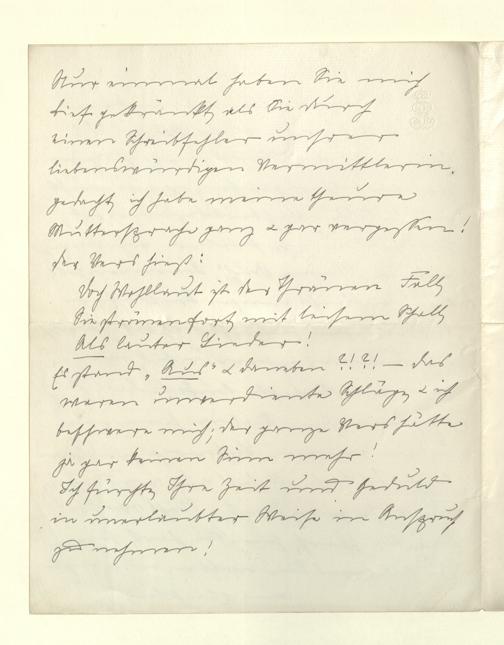 Nur einmal haben Sie mich
tief gekränkt, als Sie durch
einen Schreibfehler unsrer
liebenswürdigen Vermittlerin,
gedacht, ich habe meine theure
Muttersprache ganz & gar vergessen!
der Vers hieß:
Doch Wohllaut ist der Thränen Fall,
Sie strömen fort mit leisem Schall
Als lauter Lieder!
Es stand „Aus“ & daneben ?!?! — das
waren unverdiente Schläge & ich
beschwere mich; der ganze Vers hätte
ja gar keinen Sinn mehr!
Ich fürchte Ihre Zeit und Geduld
in unerlaubter Weise in Anspruch
zu nehmen!